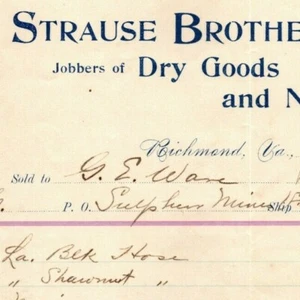 STRAUSE BROTHE
Jobbers of Dry Goods
and N
Richmond, Va.,
Sold to G. E. Ware
P. O. Sulphur Mines Ship
La. Blk Hose
" Shawnut "